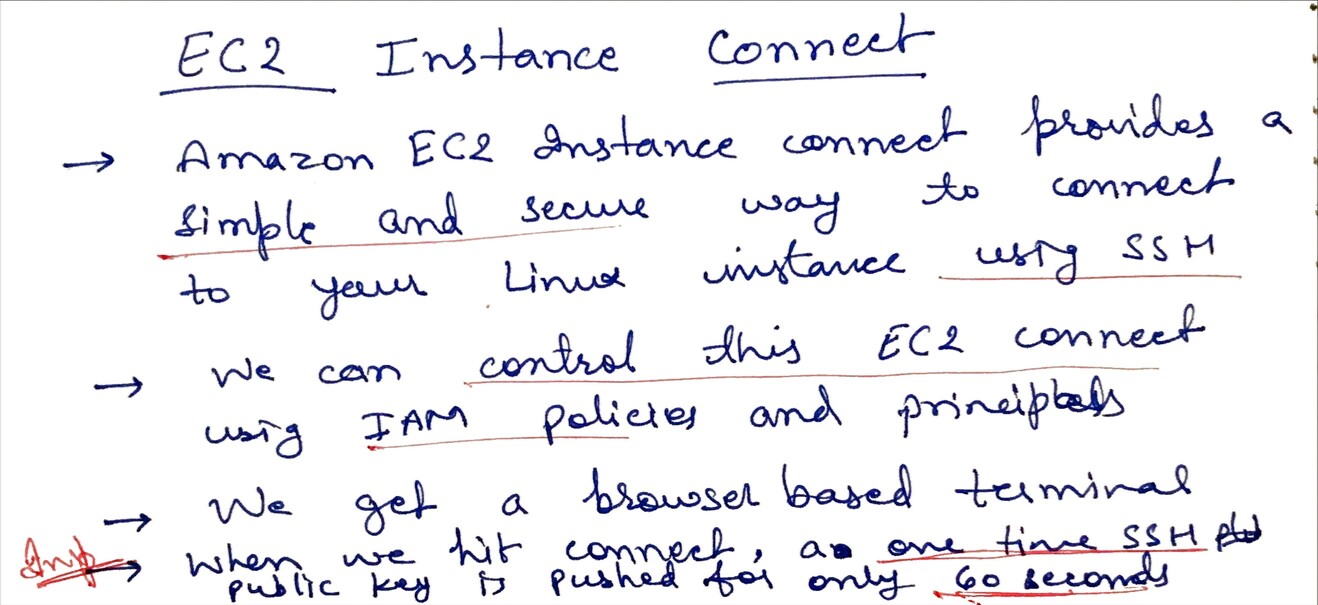 EC2 Instance Connect
→ Amazon EC2 Instance connect provides a
simple and secure way to connect
to your Linux instance using SSH
→ We can control this EC2 connect
using IAM policies and principals
→ We get a browser based terminal
Imp → when we hit connect, a one time SSH
public key is pushed for only 60 seconds